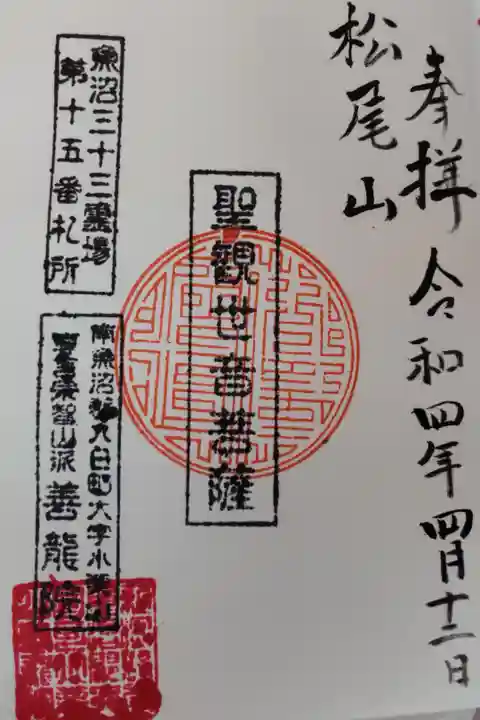 奉拝 令和四年四月十二日
松尾山
聖観世音菩薩
魚沼三十三霊場
第十五番札所
南魚沼郡六日町大字小栗山
智山派 善龍院